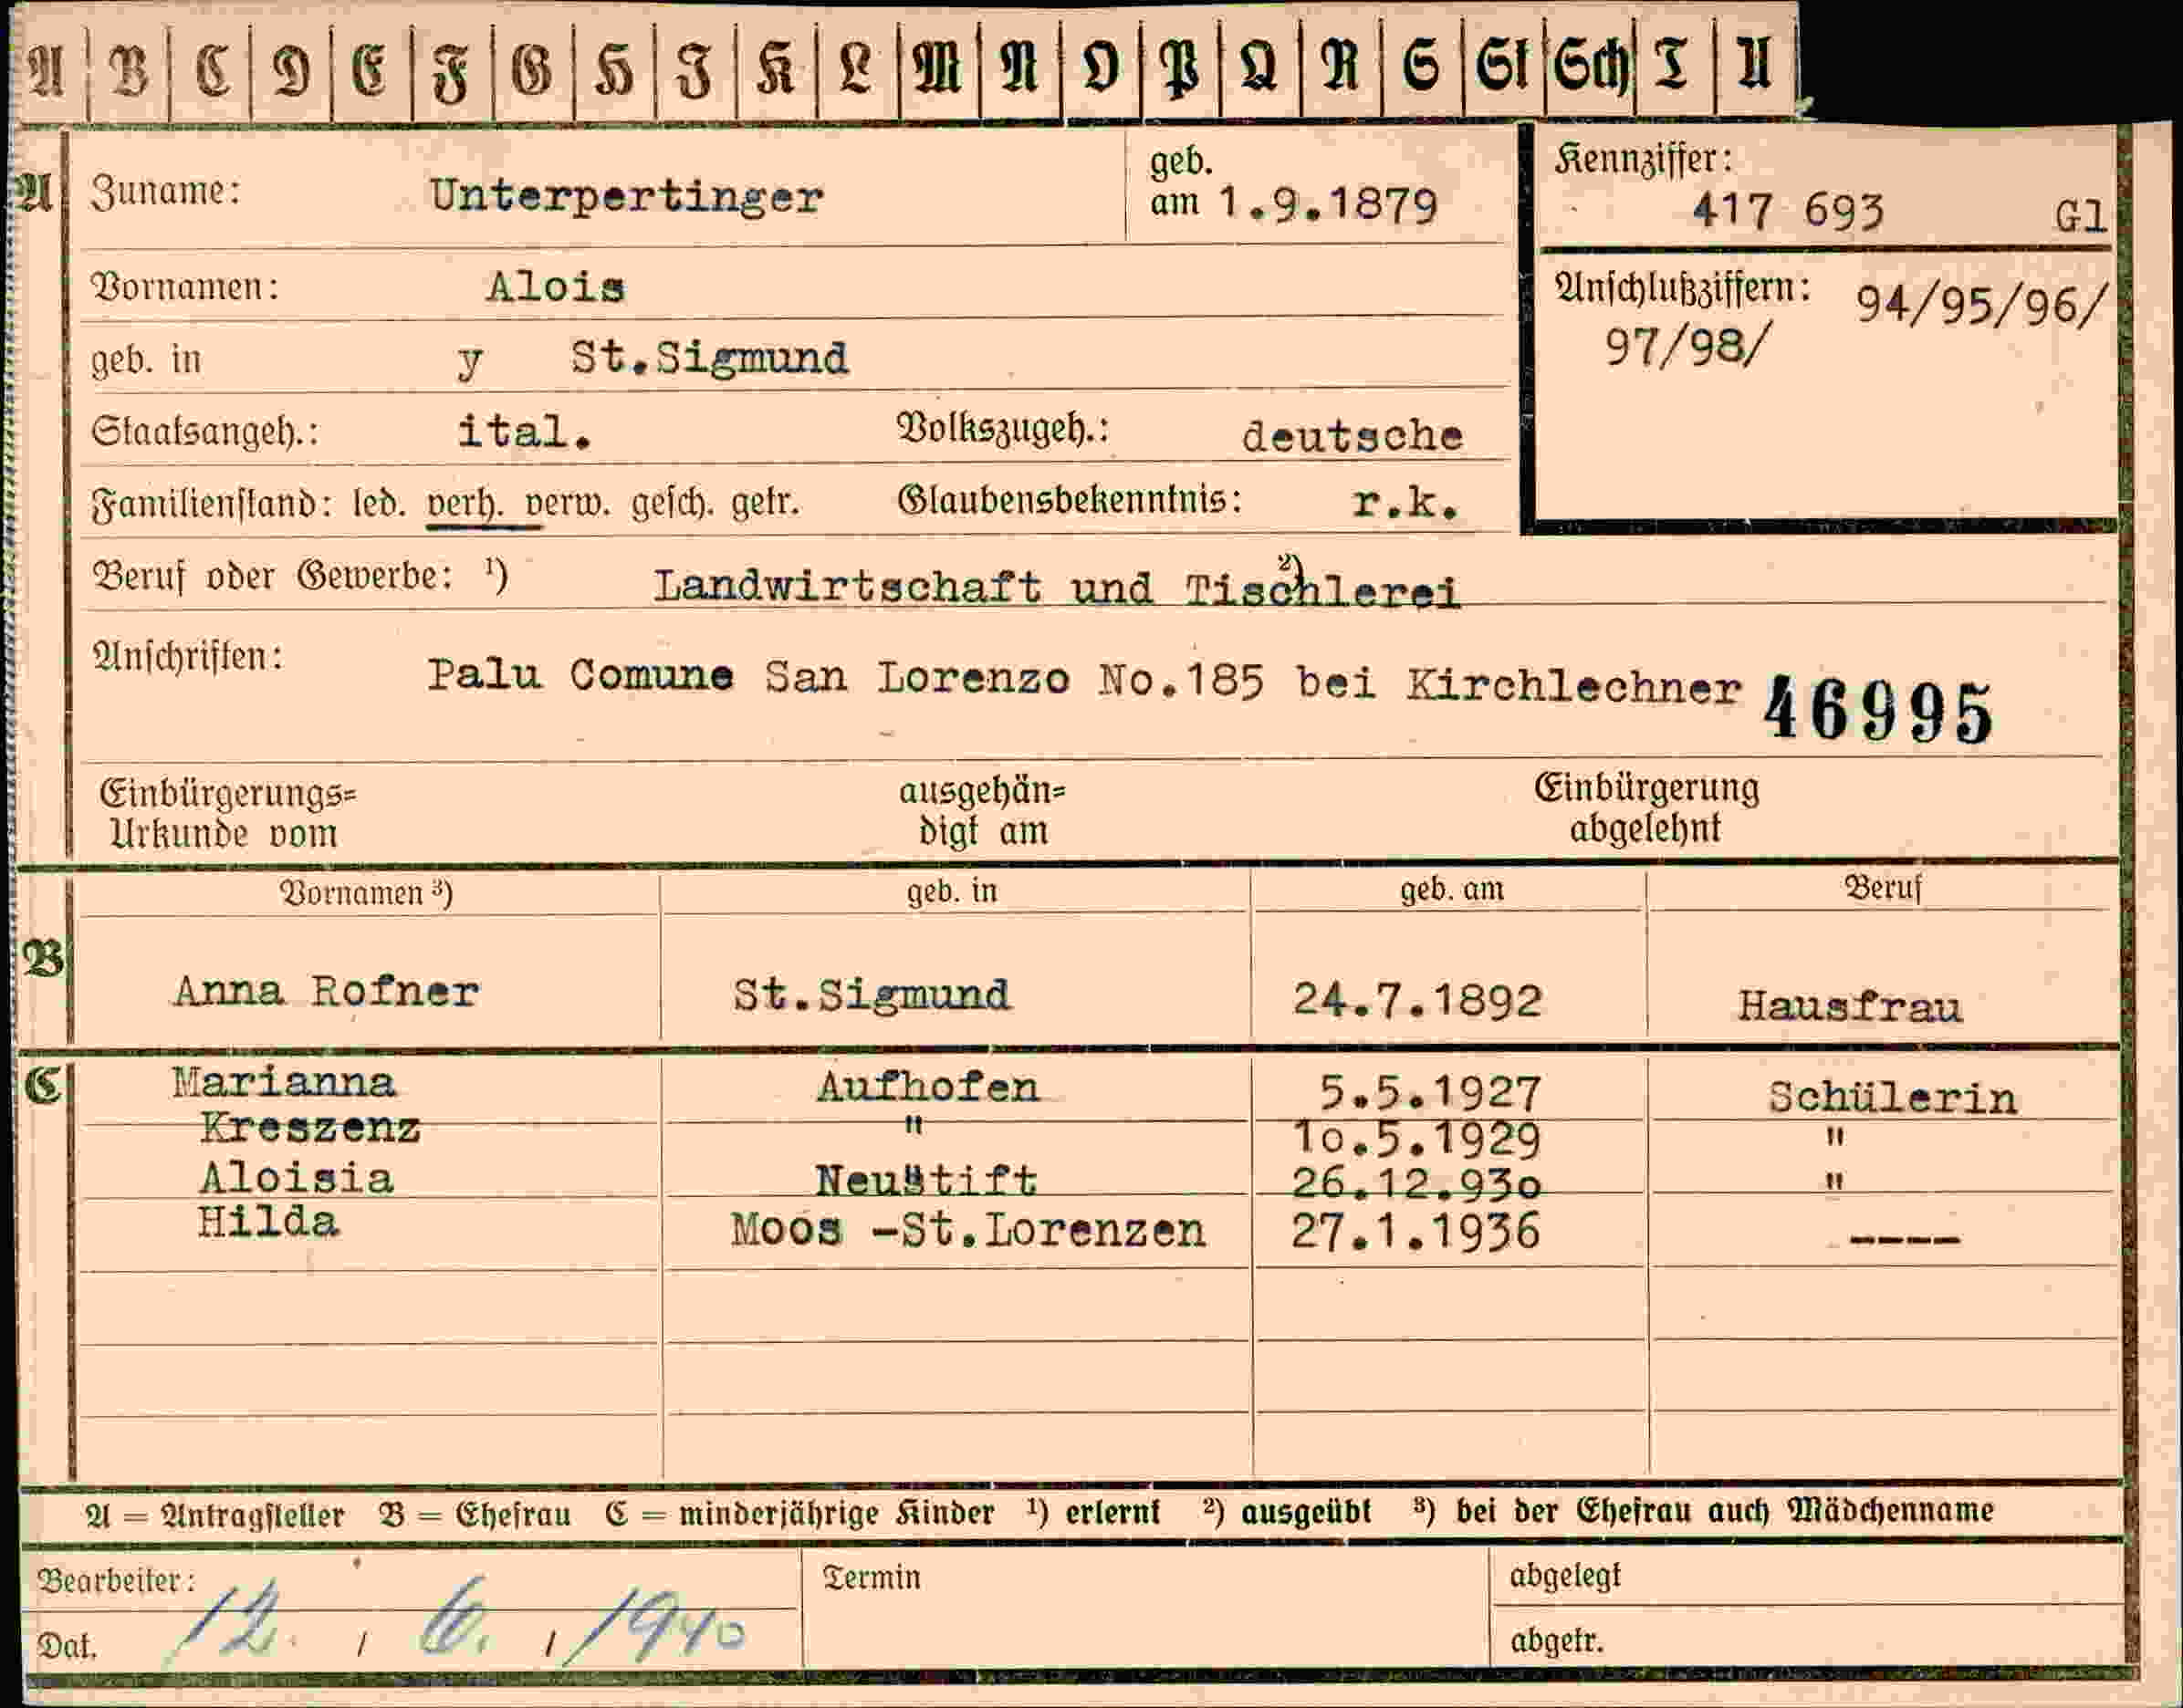 A B C D E F G H I K L M N O P Q R S St Sch T U
A Zuname: Unterpertinger geb. am 1.9.1879
Kennziffer: 417 693 Gl
Vornamen: Alois
Anschlußziffern: 94/95/96/
97/98/
geb. in y St.Sigmund
Staatsangeh.: ital. Volkszugeh.: deutsche
Familienstand: led. verh. verw. gesch. getr. Glaubensbekenntnis: r.k.
Beruf oder Gewerbe: ¹) Landwirtschaft und Tischlerei ²)
Anschriften: Palu Comune San Lorenzo No.185 bei Kirchlechner 46995
Einbürgerungs= ausgehän= Einbürgerung
Urkunde vom digt am abgelehnt
Vornamen ³) geb. in geb. am Beruf
B Anna Rofner St.Sigmund 24.7.1892 Hausfrau
C Marianna Aufhofen 5.5.1927 Schülerin
Kreszenz " 10.5.1929 "
Aloisia Neustift 26.12.930 "
Hilda Moos -St.Lorenzen 27.1.1936 ----
A = Antragsteller B = Ehefrau C = minderjährige Kinder ¹) erlernt ²) ausgeübt ³) bei der Ehefrau auch Mädchenname
Bearbeiter: Termin abgelegt
Dat. 12. / 6. / 1940 abgetr.